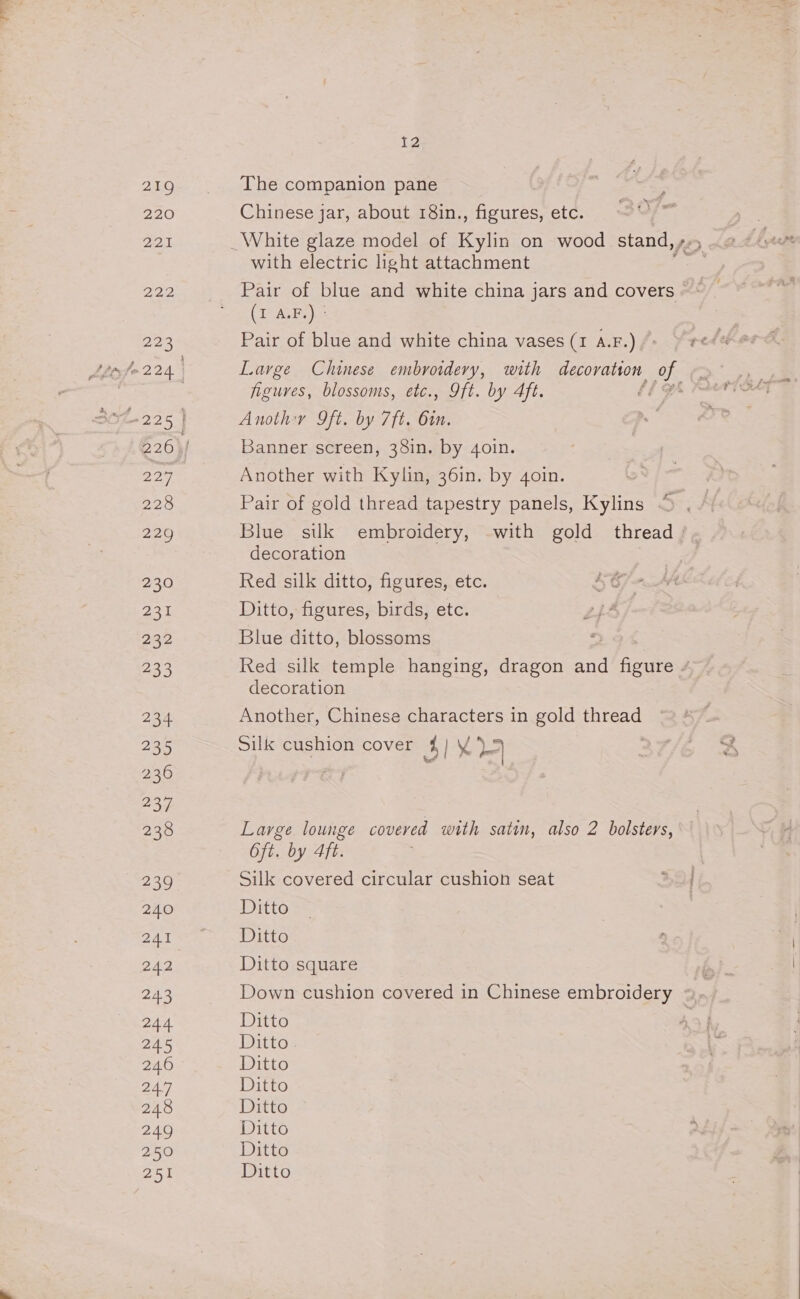 12
219 The companion pane
220 Chinese jar, about 18in., figures, etc.
221 White glaze model of Kylin on wood stand,
with electric light attachment
222 Pair of blue and white china jars and covers
(1 A.F.)
223 Pair of blue and white china vases (1 A.F.)
224 Large Chinese embroidery, with decoration of
figures, blossoms, etc., 9ft. by 4ft.
225 Another 9ft. by 7ft. 6in.
226 Banner screen, 38in. by 40in.
227 Another with Kylin, 36in. by 40in.
228 Pair of gold thread tapestry panels, Kylins
229 Blue silk embroidery, with gold thread
decoration
230 Red silk ditto, figures, etc.
231 Ditto, figures, birds, etc.
232 Blue ditto, blossoms
233 Red silk temple hanging, dragon and figure
decoration
234 Another, Chinese characters in gold thread
235 Silk cushion cover
236
237
238 Large lounge covered with satin, also 2 bolsters,
6ft. by 4ft.
239 Silk covered circular cushion seat
240 Ditto
241 Ditto
242 Ditto square
243 Down cushion covered in Chinese embroidery
244 Ditto
245 Ditto
246 Ditto
247 Ditto
248 Ditto
249 Ditto
250 Ditto
251 Ditto